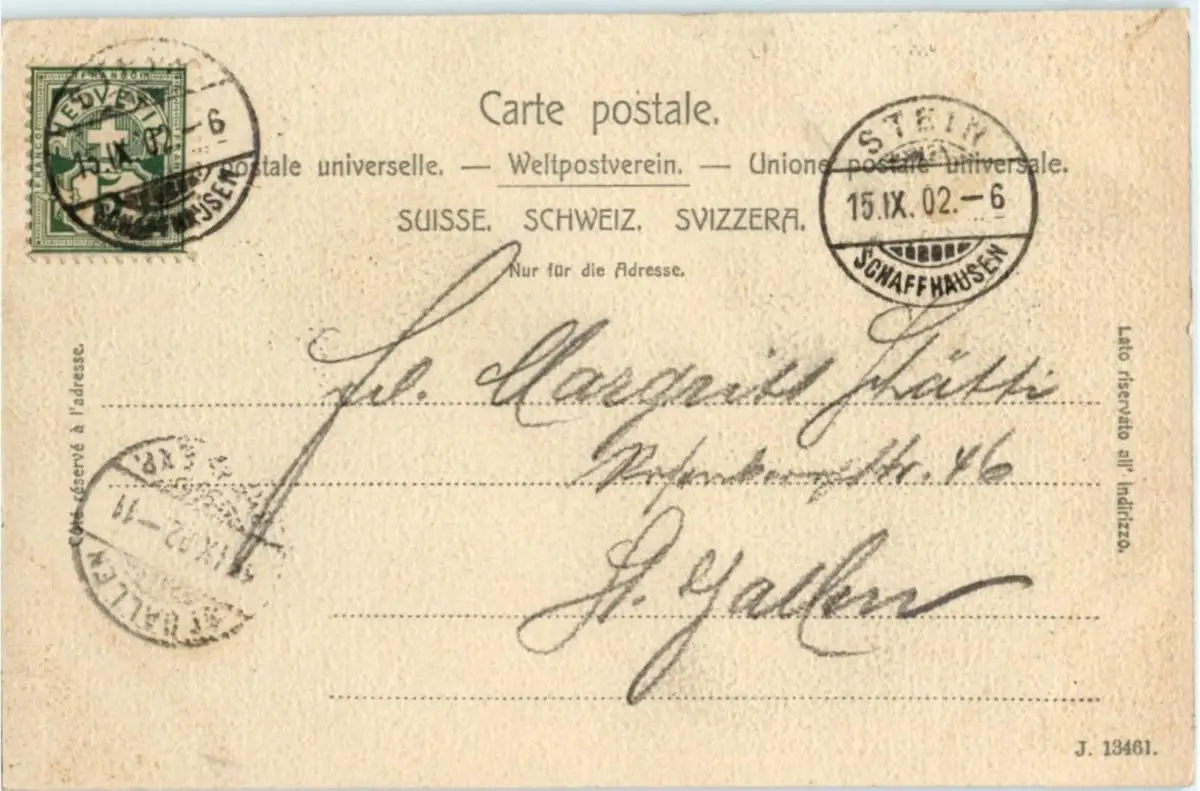 FRANCO
HELVETIA
FRANCO
15.IX.02.–6
SCHAFFHAUSEN
Carte postale.
postale universelle. — Weltpostverein. — Unione postale universale.
SUISSE. SCHWEIZ. SVIZZERA.
Nur für die Adresse.
STEIN
15.IX.02.–6
SCHAFFHAUSEN
Côté réservé à l'adresse.
Lato riservato all' indirizzo.
Frl. Margritt Schätti
46
St. Gallen
ST. GALLEN
IX.02.–11
J. 13461.